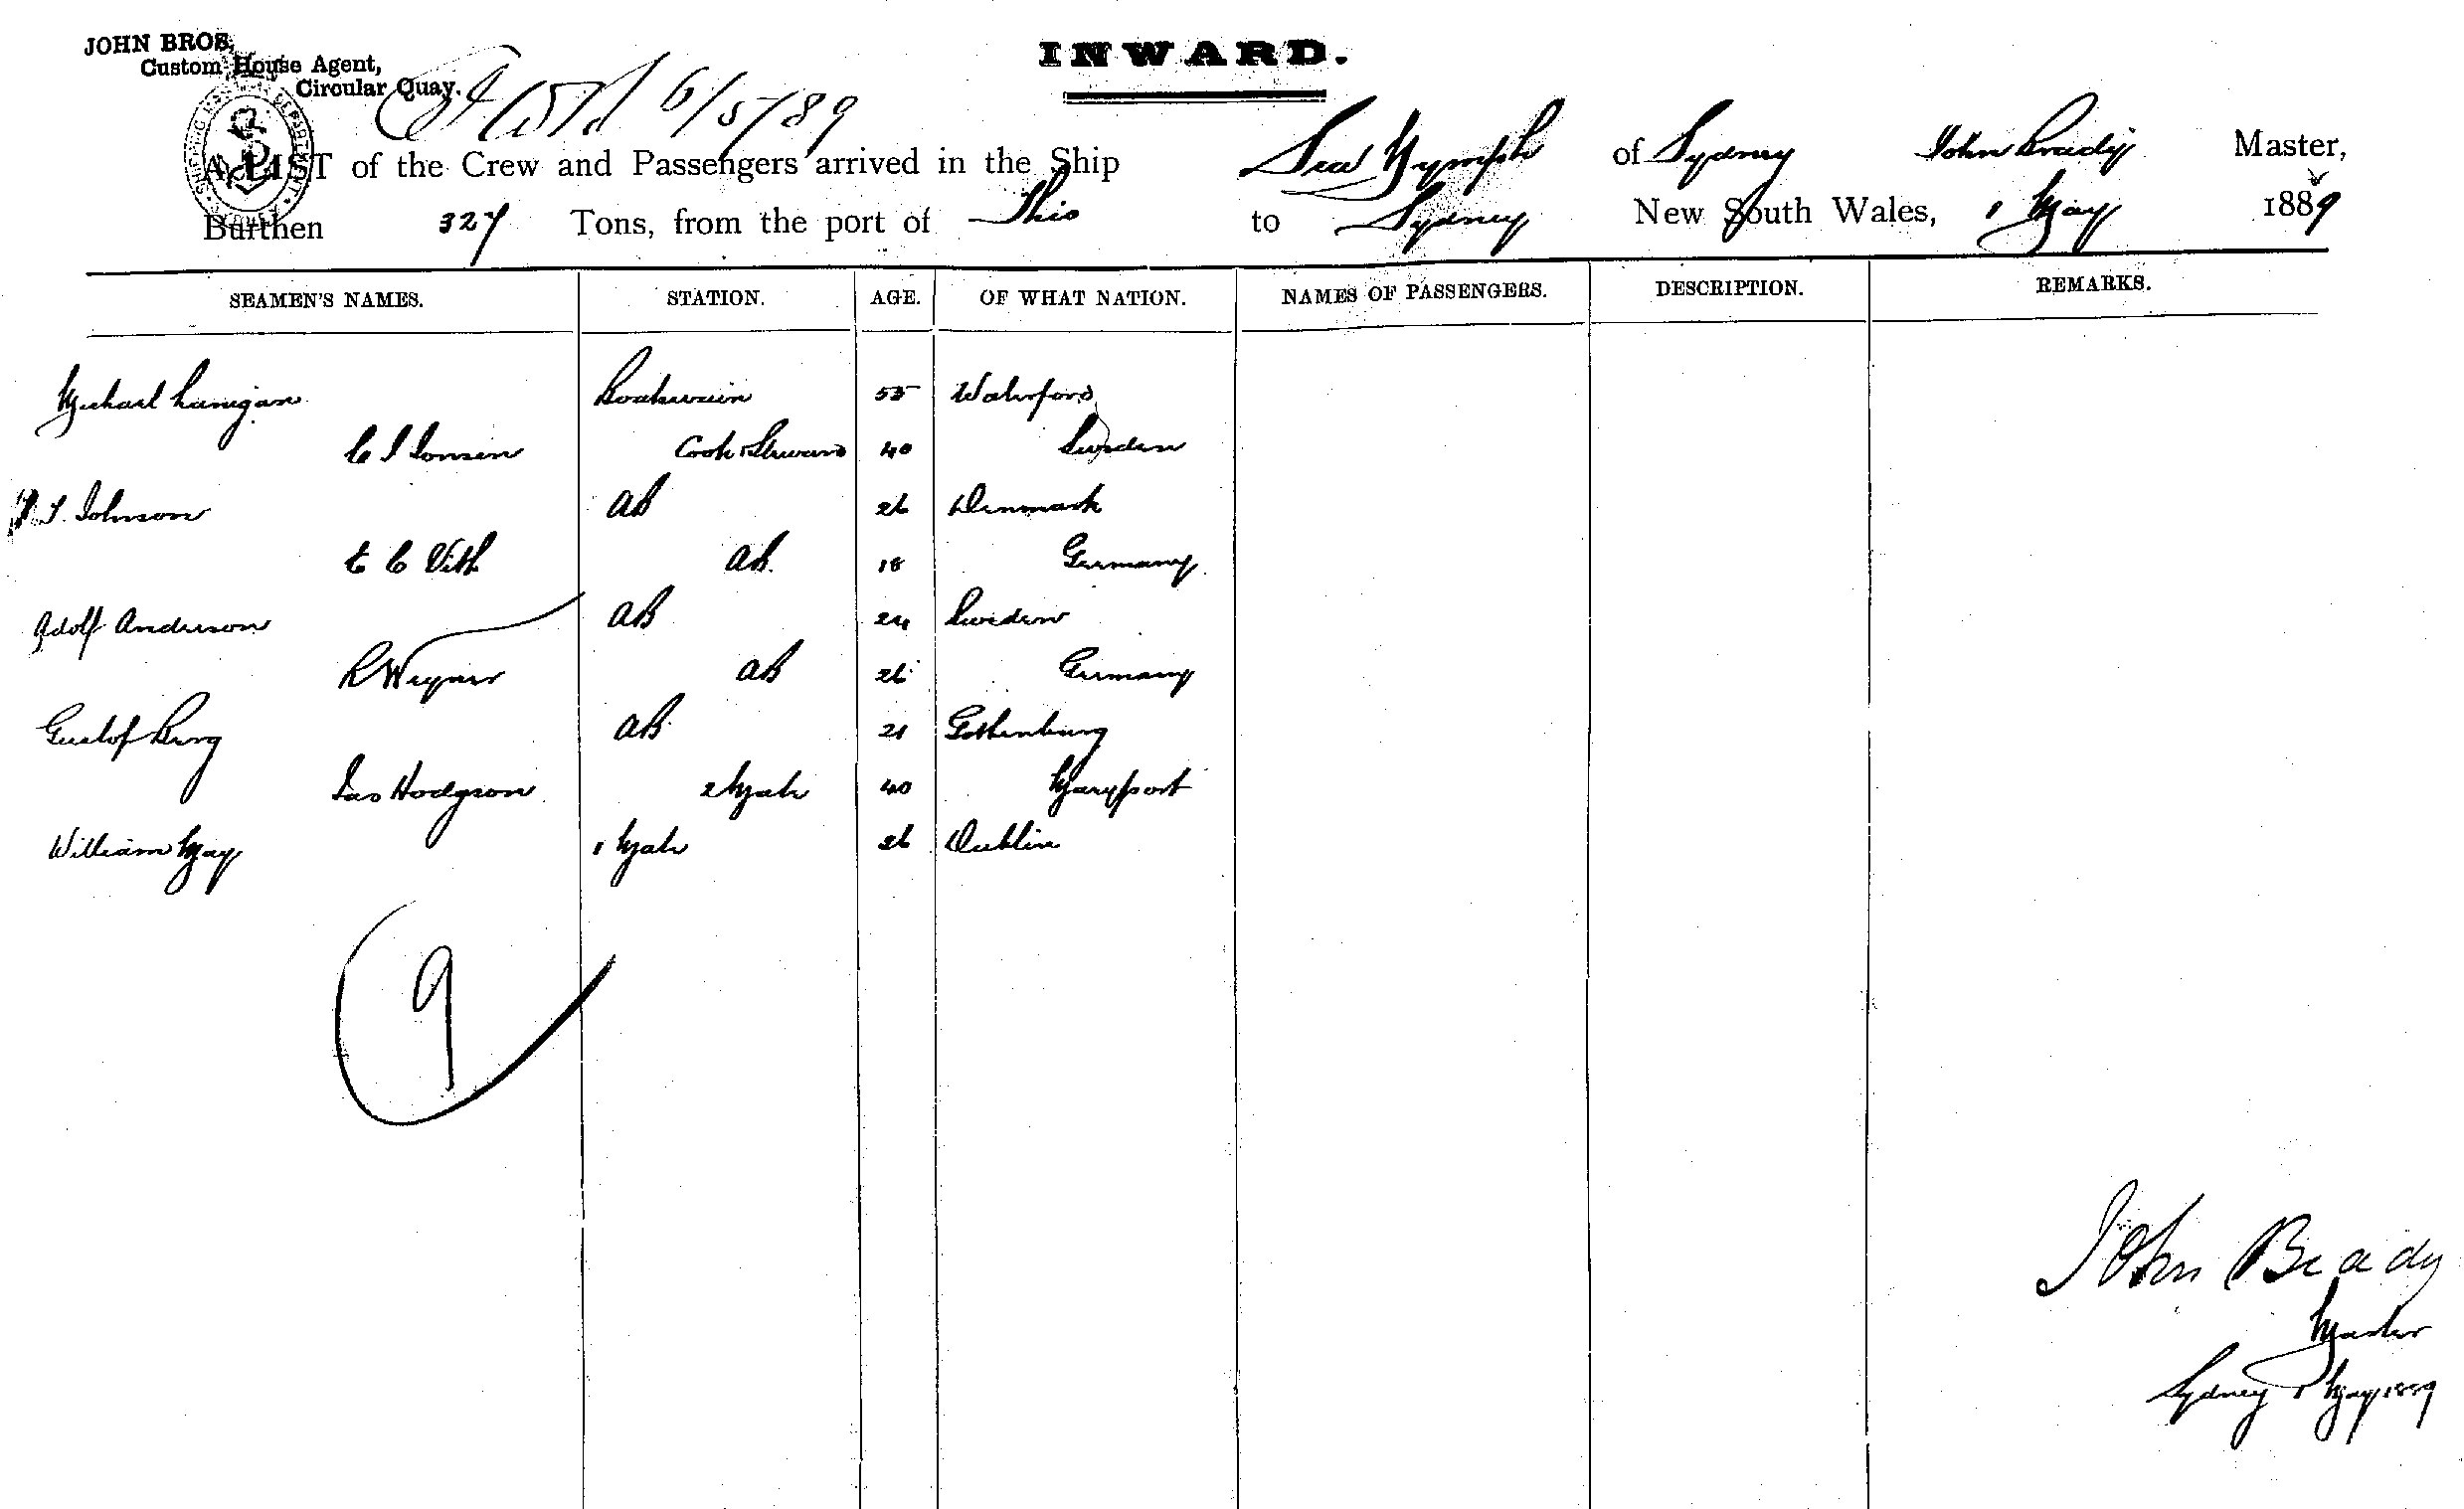 JOHN BROS,
Custom House Agent,
Circular Quay.
INWARD.
6/5/89
A LIST of the Crew and Passengers arrived in the Ship Sea Nymph of Sydney John Brady Master,
Burthen 327 Tons, from the port of Thio to Sydney New South Wales, 1 May 1889
SEAMEN'S NAMES. STATION. AGE. OF WHAT NATION. NAMES OF PASSENGERS. DESCRIPTION. REMARKS.
Michael Lanigan Boatswain 55 Waterford
C J Jonsen Cook & Steward 40 Sweden
J. Johnson AB 26 Denmark
E C Vith AB 18 Germany
Adolf Anderson AB 24 Sweden
R Wegner AB 26 Germany
Gustof Berg AB 21 Gothenburg
Jas Hodgson 2 Mate 40 Maryport
William May 1 Mate 26 Dublin
9
John Brady
Master
Sydney 1 May 1889